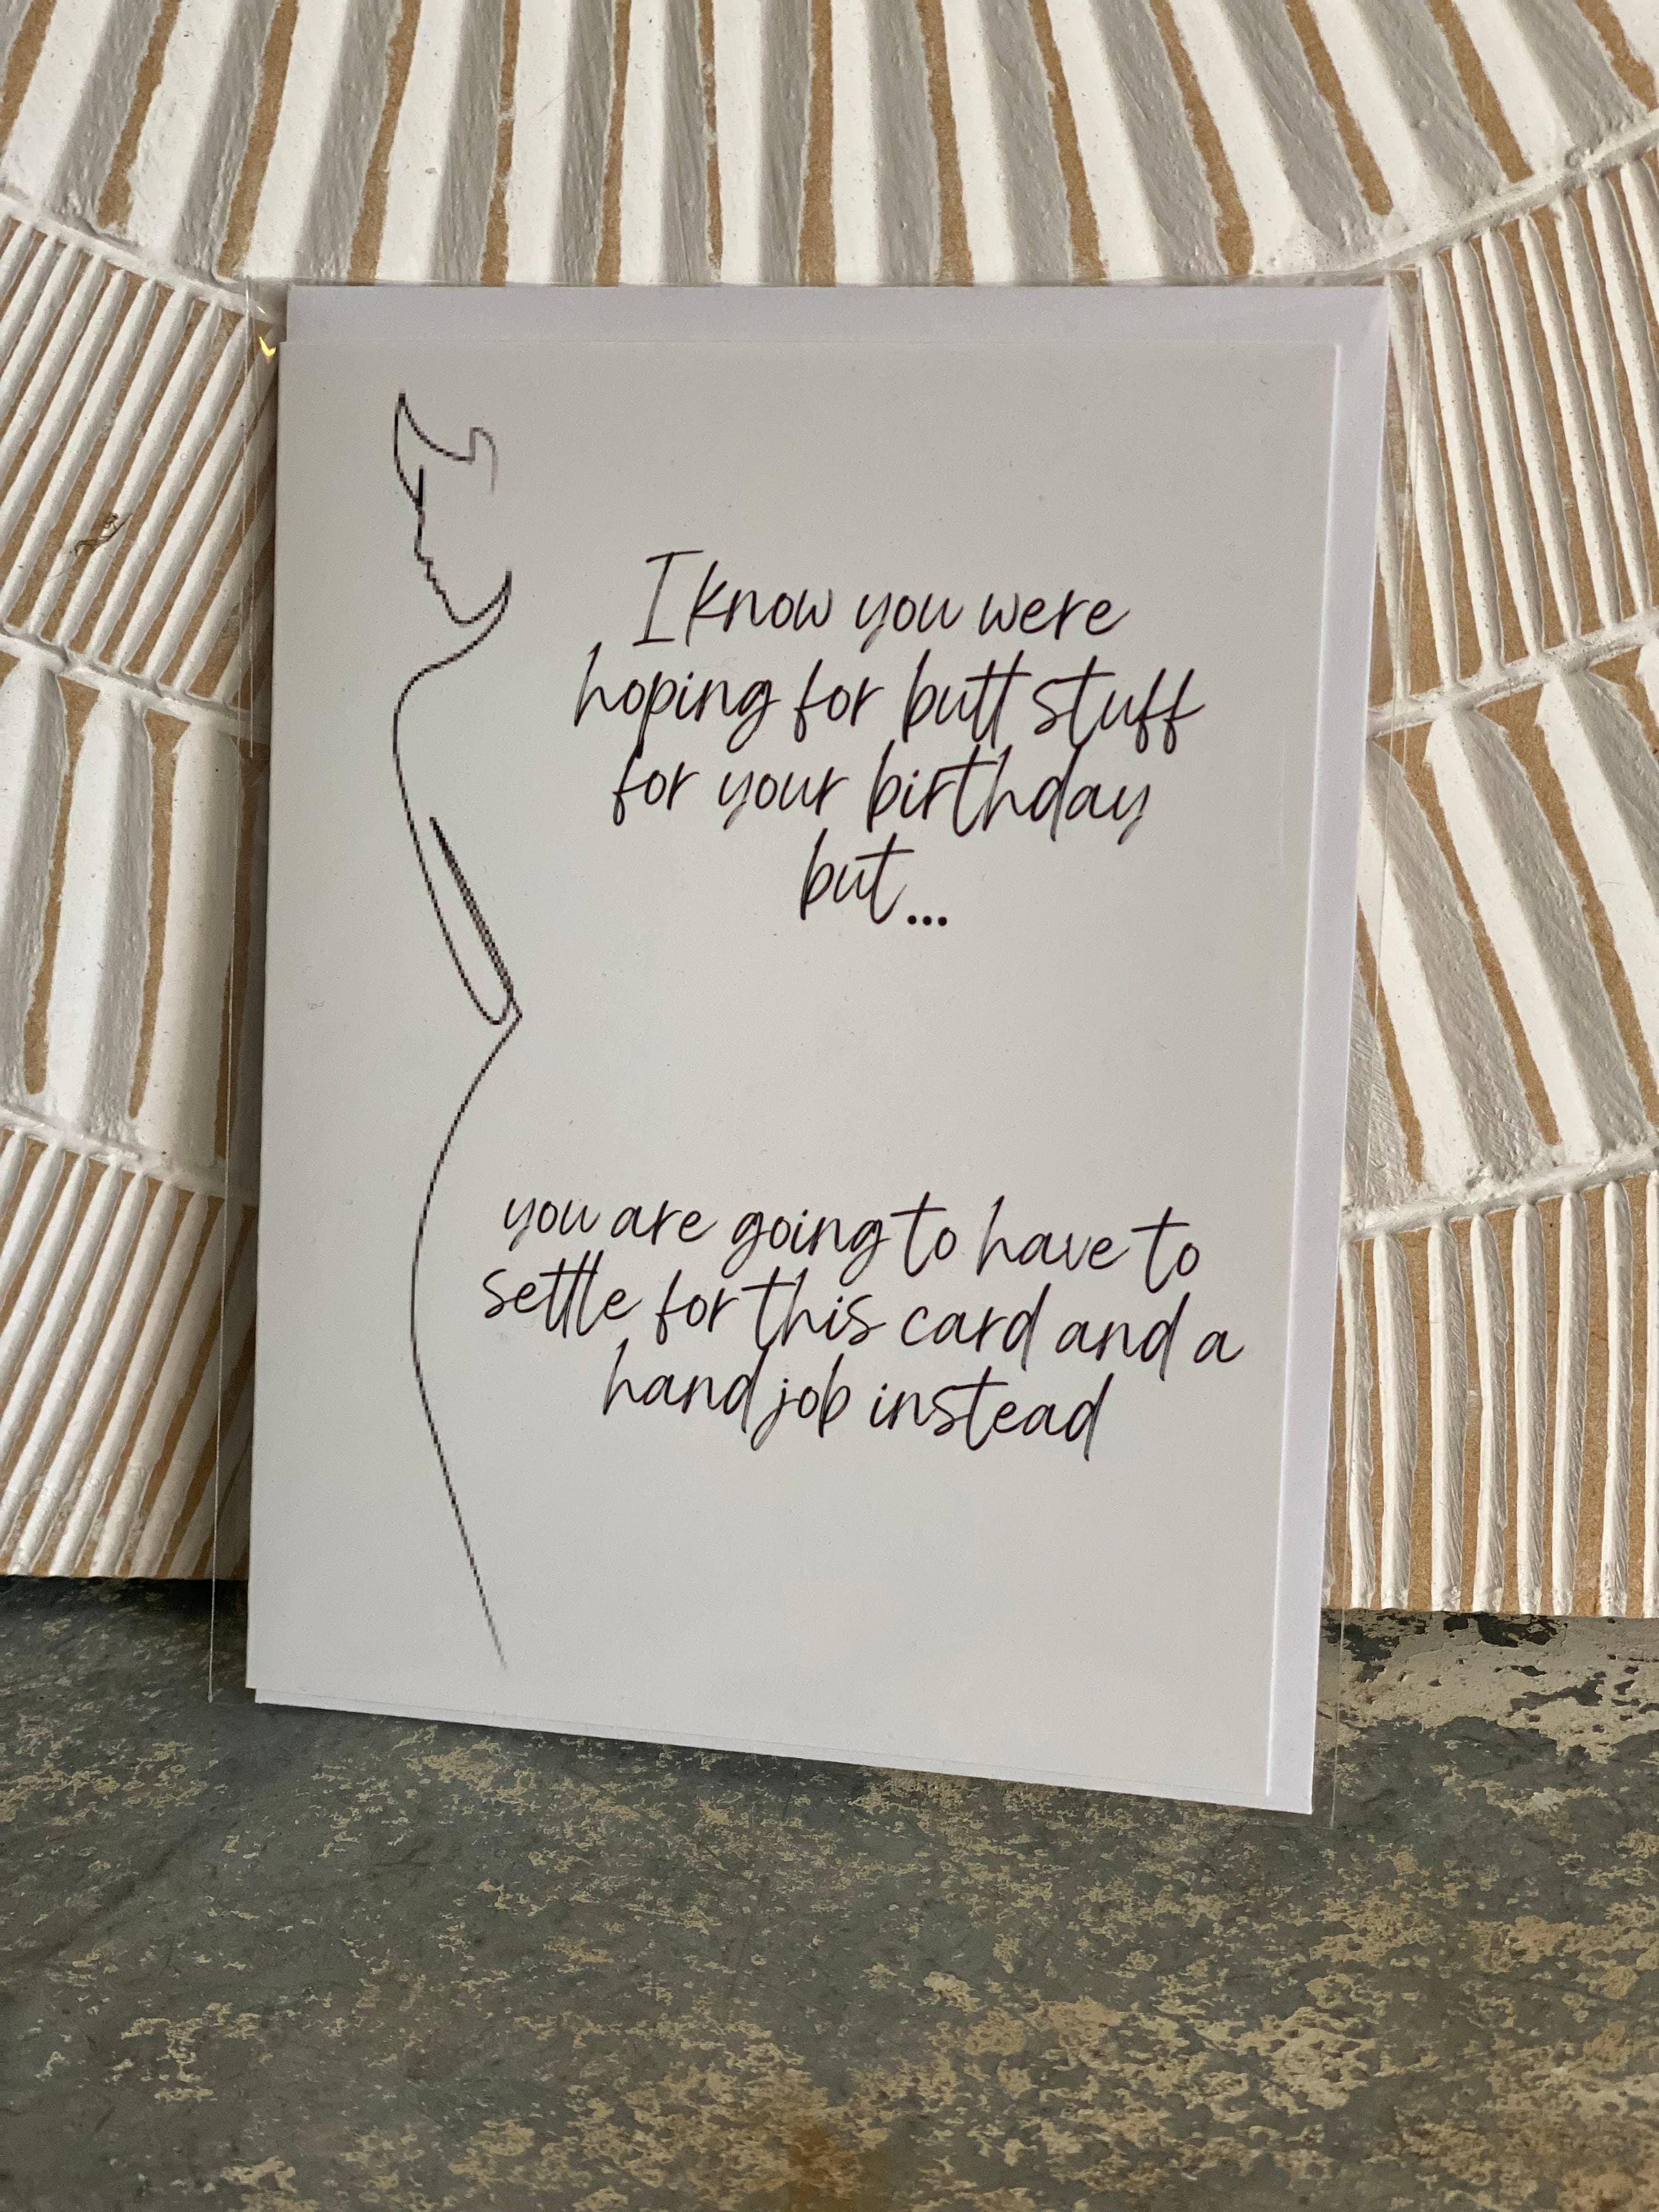 I know you were
hoping for butt stuff
for your birthday
but...
you are going to have to
settle for this card and a
hand job instead